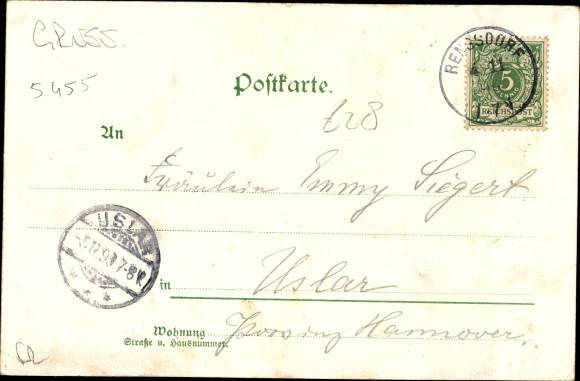 GRUSS.
5455
Postkarte.
RENGSDORF
4 11
1-7N
5
PFENNIG
REICHSPOST
£28
An
Fräulein Emmy Siegert
USLAR
7-8V.
in Uslar
Wohnung
Straße u. Hausnummer.
Provinz Hannover.